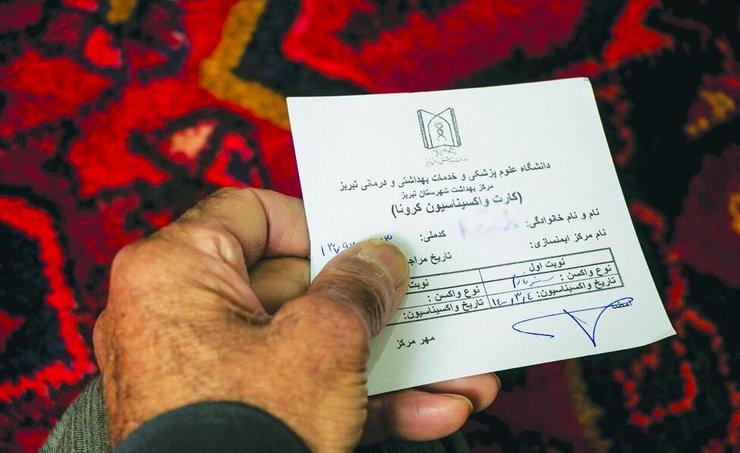 دانشگاه علوم پزشکی و خدمات بهداشتی و درمانی تبریز
مرکز بهداشت شهرستان تبریز
(کارت واکسیناسیون کرونا)
نام و نام خانوادگی: کدملی:
نام مرکز ایمنسازی: تاریخ مراج
نوبت اول نوبت
نوع واکسن : نوع واکسن :
تاریخ واکسیناسیون: تاریخ واکسیناسیون:
امضا
مهر مرکز